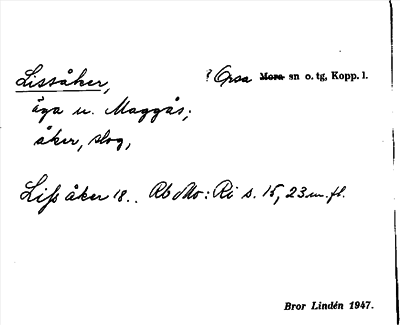 Lissåker, ? Orsa Mora sn o. tg, Kopp. l.
äga u. Maggås;
åker, slog,
Lifs åker 18.. Rb Mo: Ri s. 15, 23 m. fl.
Bror Lindén 1947.